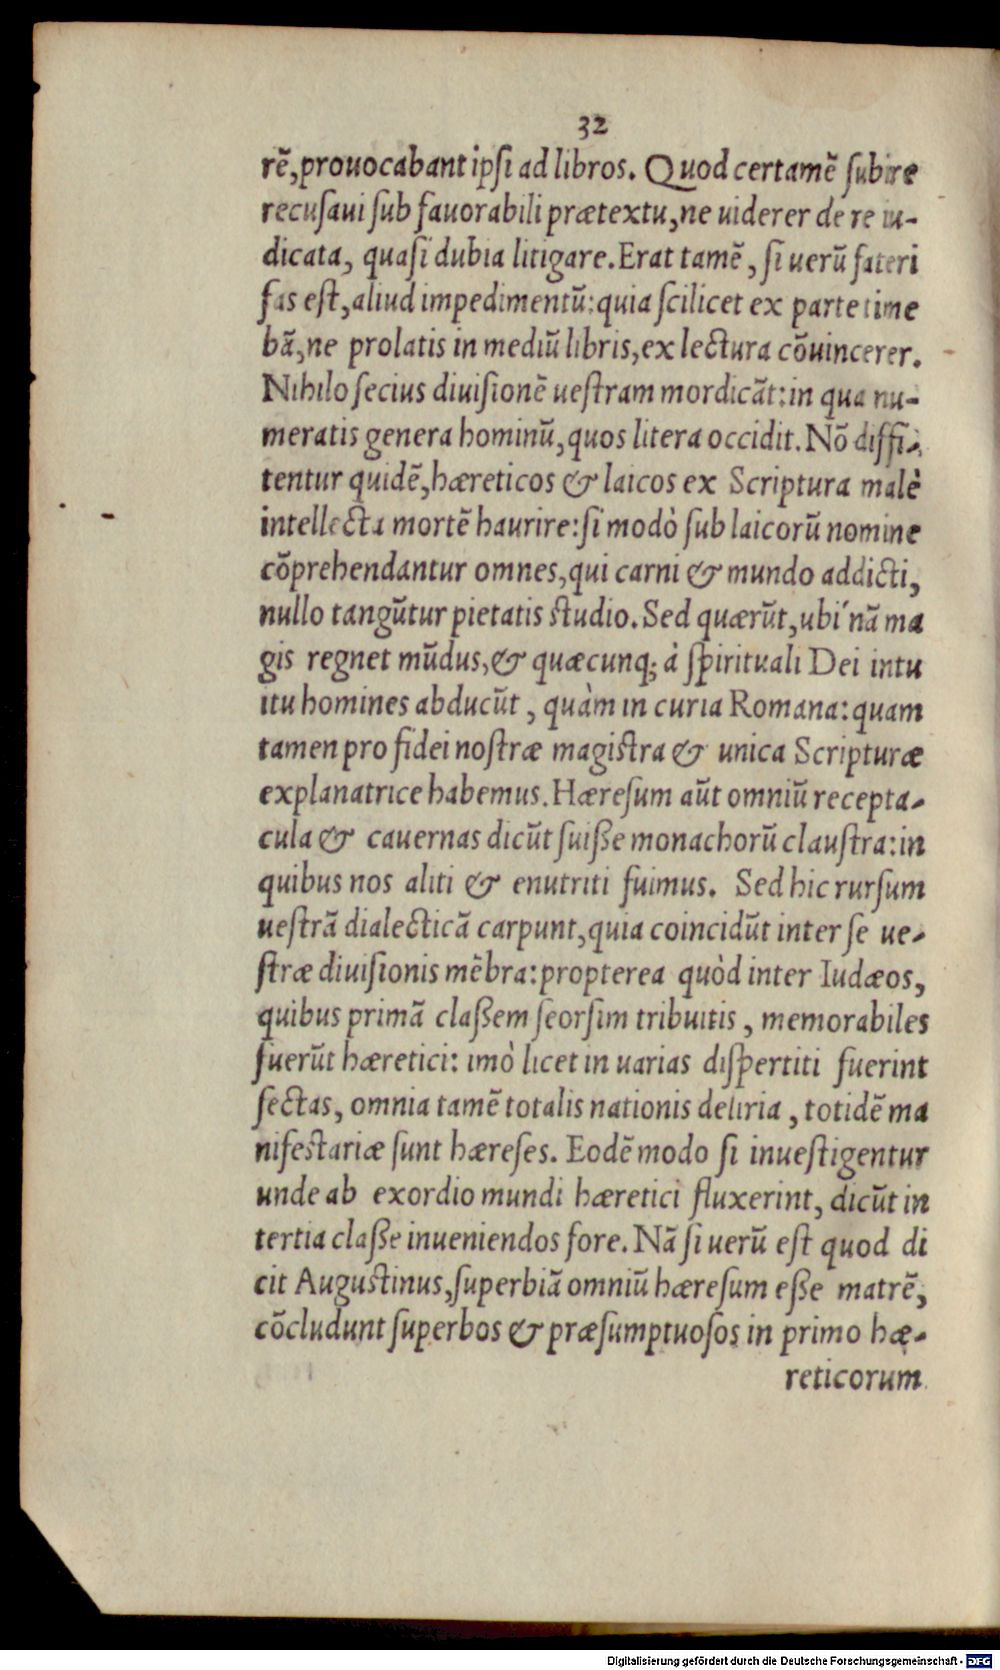 32
rē,prouocabant ipſi ad libros. Quod certamē ſubire
recuſaui ſub fauorabili prætextu,ne uiderer de re iu-
dicata, quaſi dubia litigare.Erat tamē, ſi uerū fateri
fas eſt,aliud impedimentū:quia ſcilicet ex parte time
bā,ne prolatis in mediū libris,ex lectura cōuincerer.
Nihilo ſecius diuiſionē ueſtram mordicāt:in qua nu-
meratis genera hominū,quos litera occidit.Nō diffi-
tentur quidē,hæreticos & laicos ex Scriptura malè
intellecta mortē haurire:ſi modò ſub laicorū nomine
cōprehendantur omnes,qui carni & mundo addicti,
nullo tangūtur pietatis ſtudio.Sed quærūt,ubi´nā ma
gis regnet mūdus,& quæcunq; à ſpirituali Dei intu
itu homines abducūt, quàm in curia Romana:quam
tamen pro fidei noſtræ magiſtra & unica Scripturæ
explanatrice habemus.Hæreſum aūt omniū recepta-
cula & cauernas dicūt fuiſſe monachorū clauſtra:in
quibus nos aliti & enutriti fuimus. Sed hic rurſum
ueſtrā dialecticā carpunt,quia coincidūt inter ſe ue-
ſtræ diuiſionis mēbra:propterea quòd inter Iudæos,
quibus primā claßem ſeorſim tribuitis, memorabiles
fuerūt hæretici: imò licet in uarias diſpertiti fuerint
ſectas, omnia tamē totalis nationis deliria, totidē ma
nifeſtariæ ſunt hæreſes. Eodē modo ſi inueſtigentur
unde ab exordio mundi hæretici fluxerint, dicūt in
tertia claße inueniendos fore.Nā ſi uerū eſt quod di
cit Auguſtinus,ſuperbiā omniū hæreſum eße matrē,
cōcludunt ſuperbos & præſumptuoſos in primo hæ-
reticorum
Digitalisierung gefördert durch die Deutsche Forschungsgemeinschaft - DFG